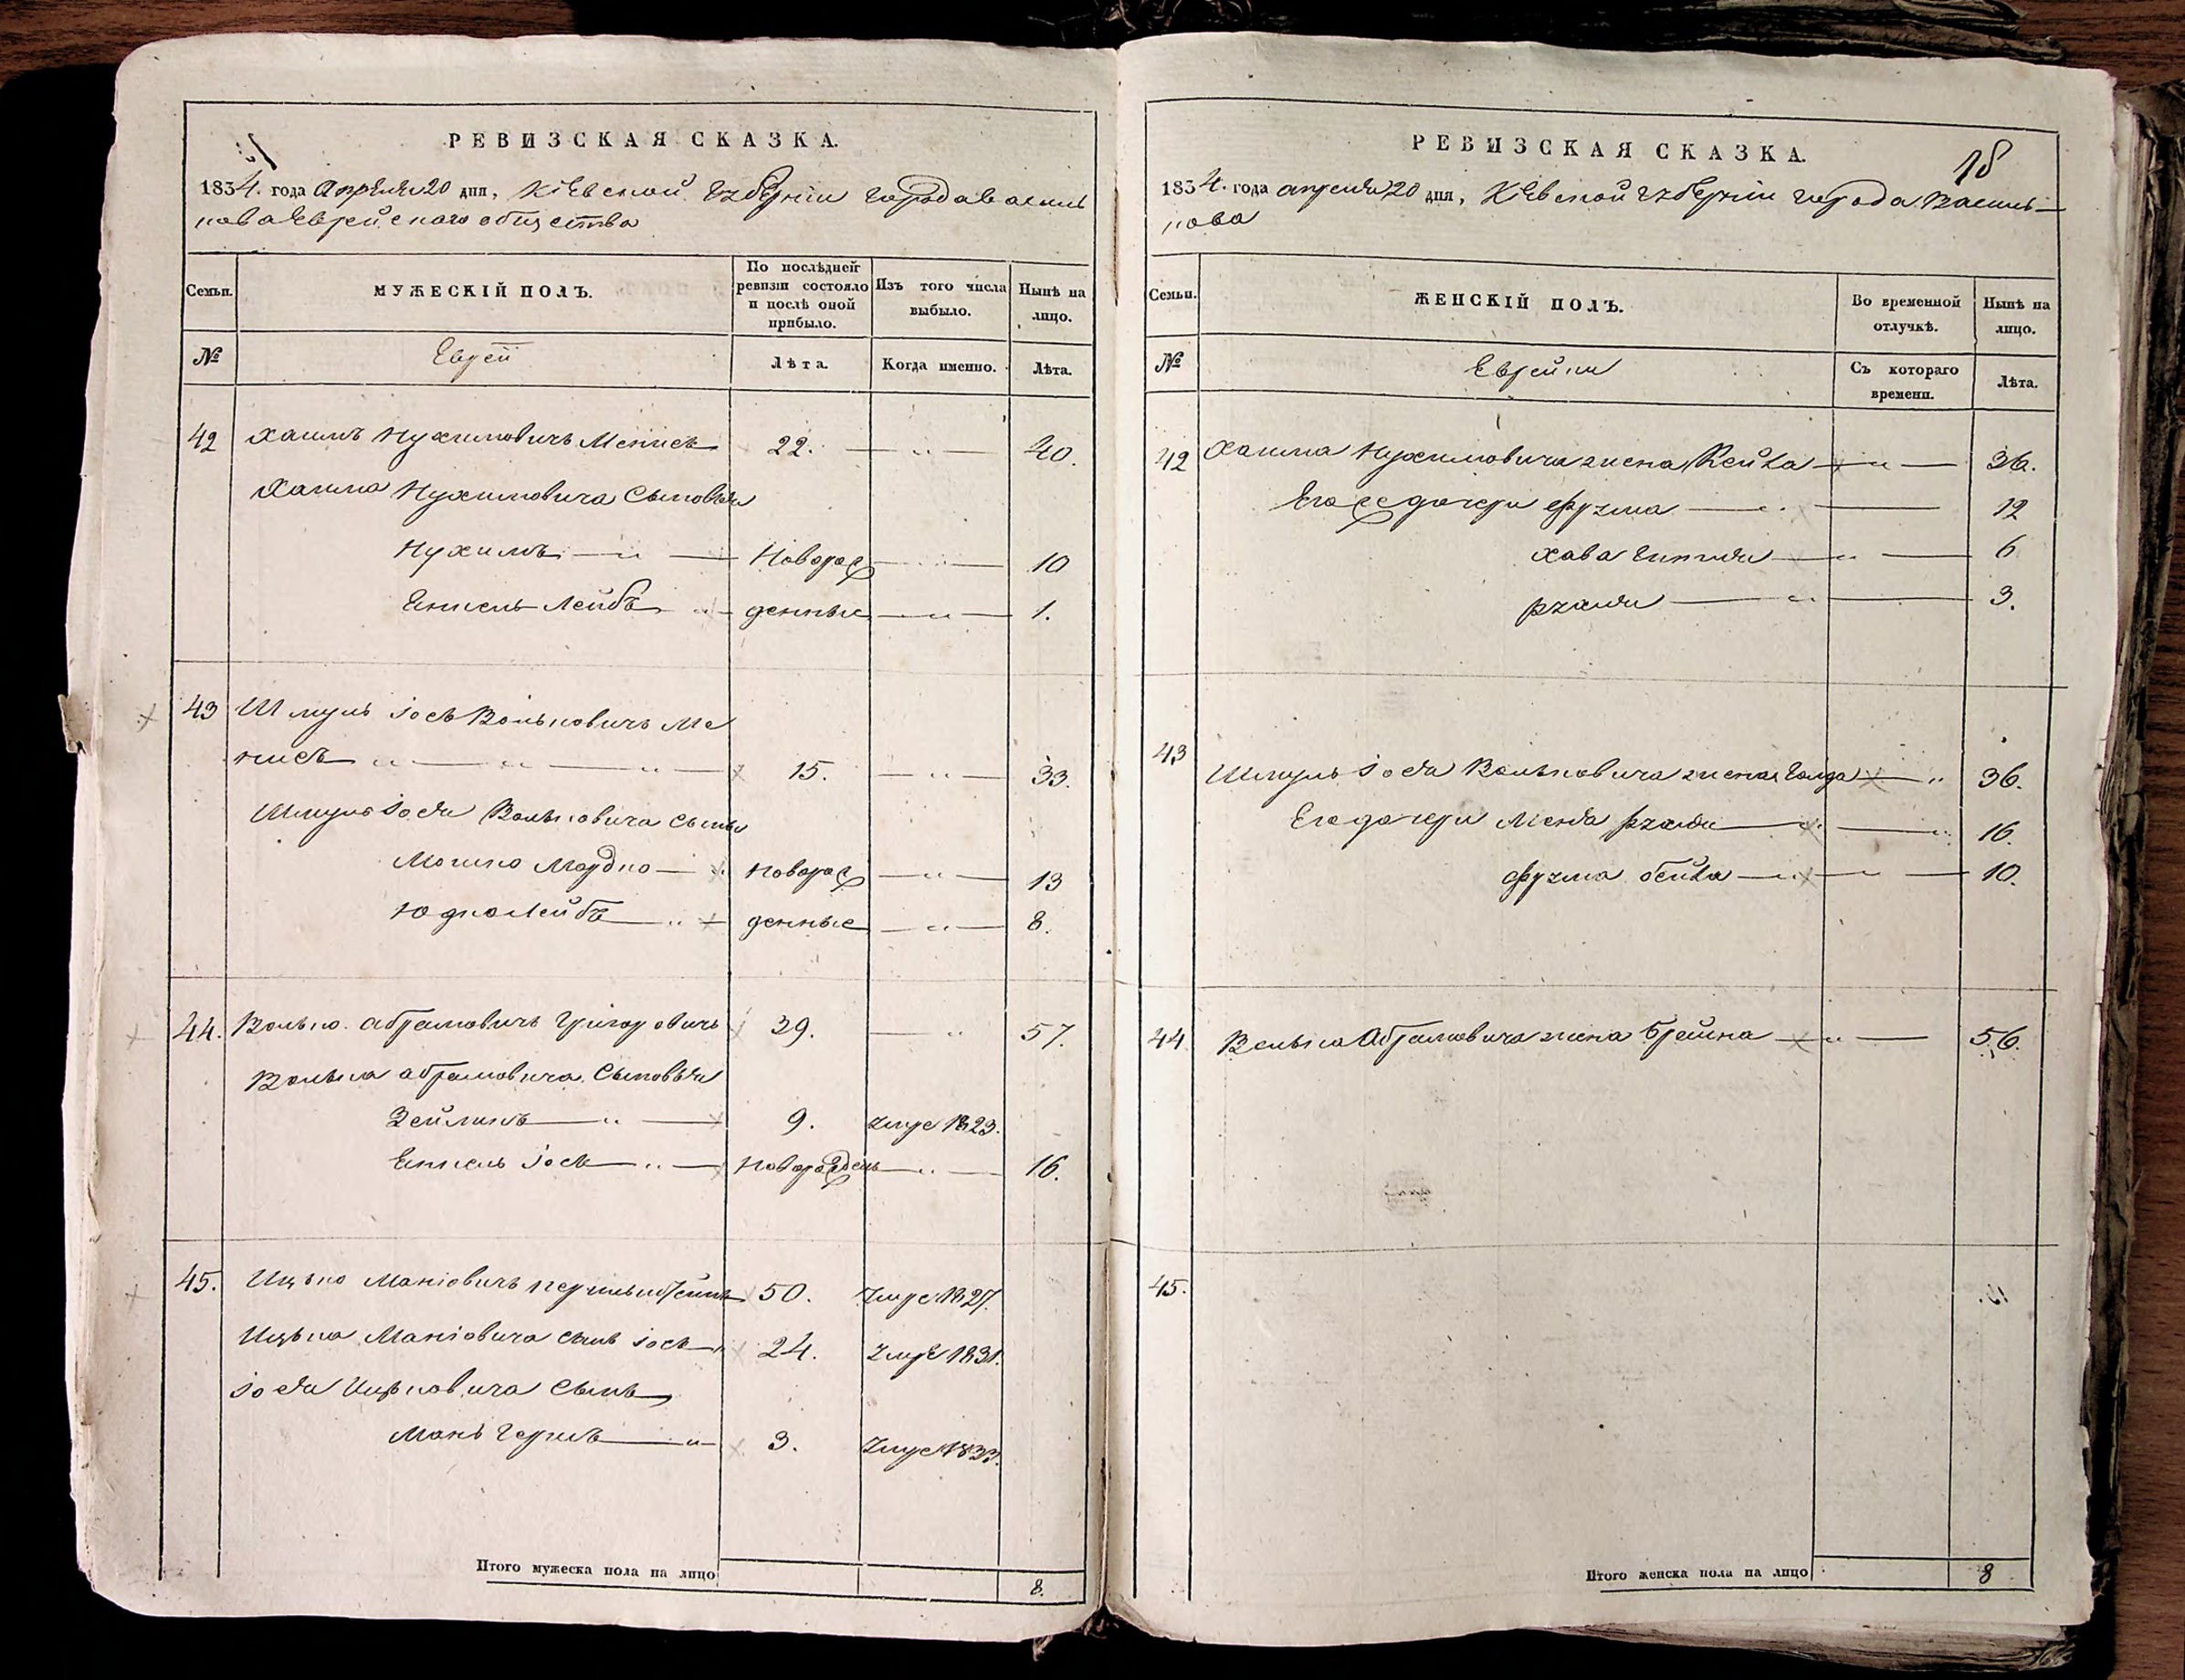 РЕВИЗСКАЯ СКАЗКА.
1834. года Апреля 20 дня, Кіевской Губерніи города Василь
кова Еврейскаго общества
Семьи.
МУЖЕСКІЙ ПОЛЪ.
По послѣдней ревизіи состояло и послѣ оной прибыло.
Изъ того числа выбыло.
Нынѣ на лицо.
№
Евреи
Лѣта.
Когда именно.
Лѣта.
42 Хаимъ Нухимовичъ 22. 40.
Хаима Нухимовича Сыновья
Нухимъ Новорож 10
Лейбъ денные 1.
43 Шмуль Іось Вольковичъ
15. 33.
Шмуль Іося Вольковича Сыны
Мошко Мордко новорож 13
Юдко Лейбъ денные 8.
44. Волько Абрамовичъ Григоровичъ 39. 57.
Волька Абрамовича Сыновья
Зейликъ 9. умре 1823.
Іось новорожден 16.
45. Ицько Маніовичъ 50. умре 1827.
Ицька Маніовича сынъ Іось 24. умре 1831.
Іося Ицковича сынъ
Мань Гершъ 3. умре 1833.
Итого мужеска пола на лицо 8.
РЕВИЗСКАЯ СКАЗКА.
18
1834. года апреля 20 дня, Кіевской Губерніи города Василь—
кова
Семьи.
ЖЕНСКІЙ ПОЛЪ.
Во временной отлучкѣ.
Нынѣ на лицо.
№
Еврейки
Съ котораго времени.
Лѣта.
42 Хаима Нухимовича жена Рейза 36.
Его дочери Фрума 12
Хава Гитля 6
Рухля 3.
43 Шмуль Іося Вольковича жена Голда 36.
Его дочери Рухля 16.
Фрума Бейла 10.
44 Волька Абрамовича жена Брейна 56.
45.
Итого женска пола на лицо 8